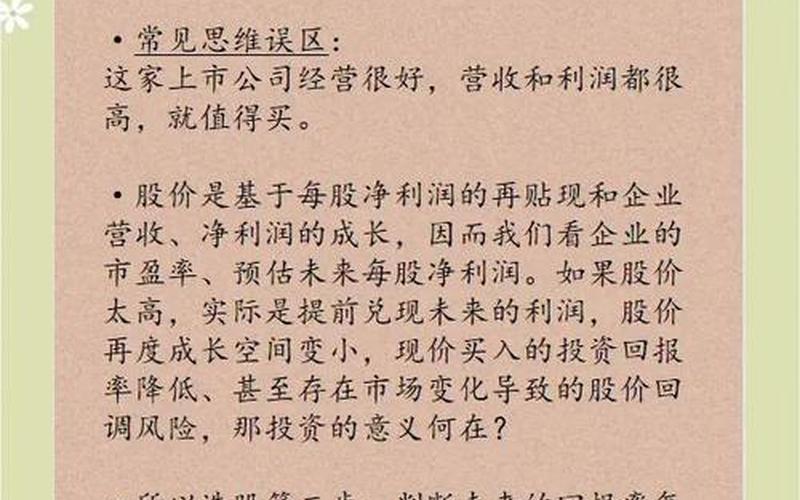 ·常见思维误区：
这家上市公司经营很好，营收和利润都很
高，就值得买。
·股价是基于每股净利润的再贴现和企业
营收、净利润的成长，因而我们看企业的
市盈率、预估未来每股净利润。如果股价
太高，实际是提前兑现未来的利润，股价
再度成长空间变小，现价买入的投资回报
率降低、甚至存在市场变化导致的股价回
调风险，那投资的意义何在？